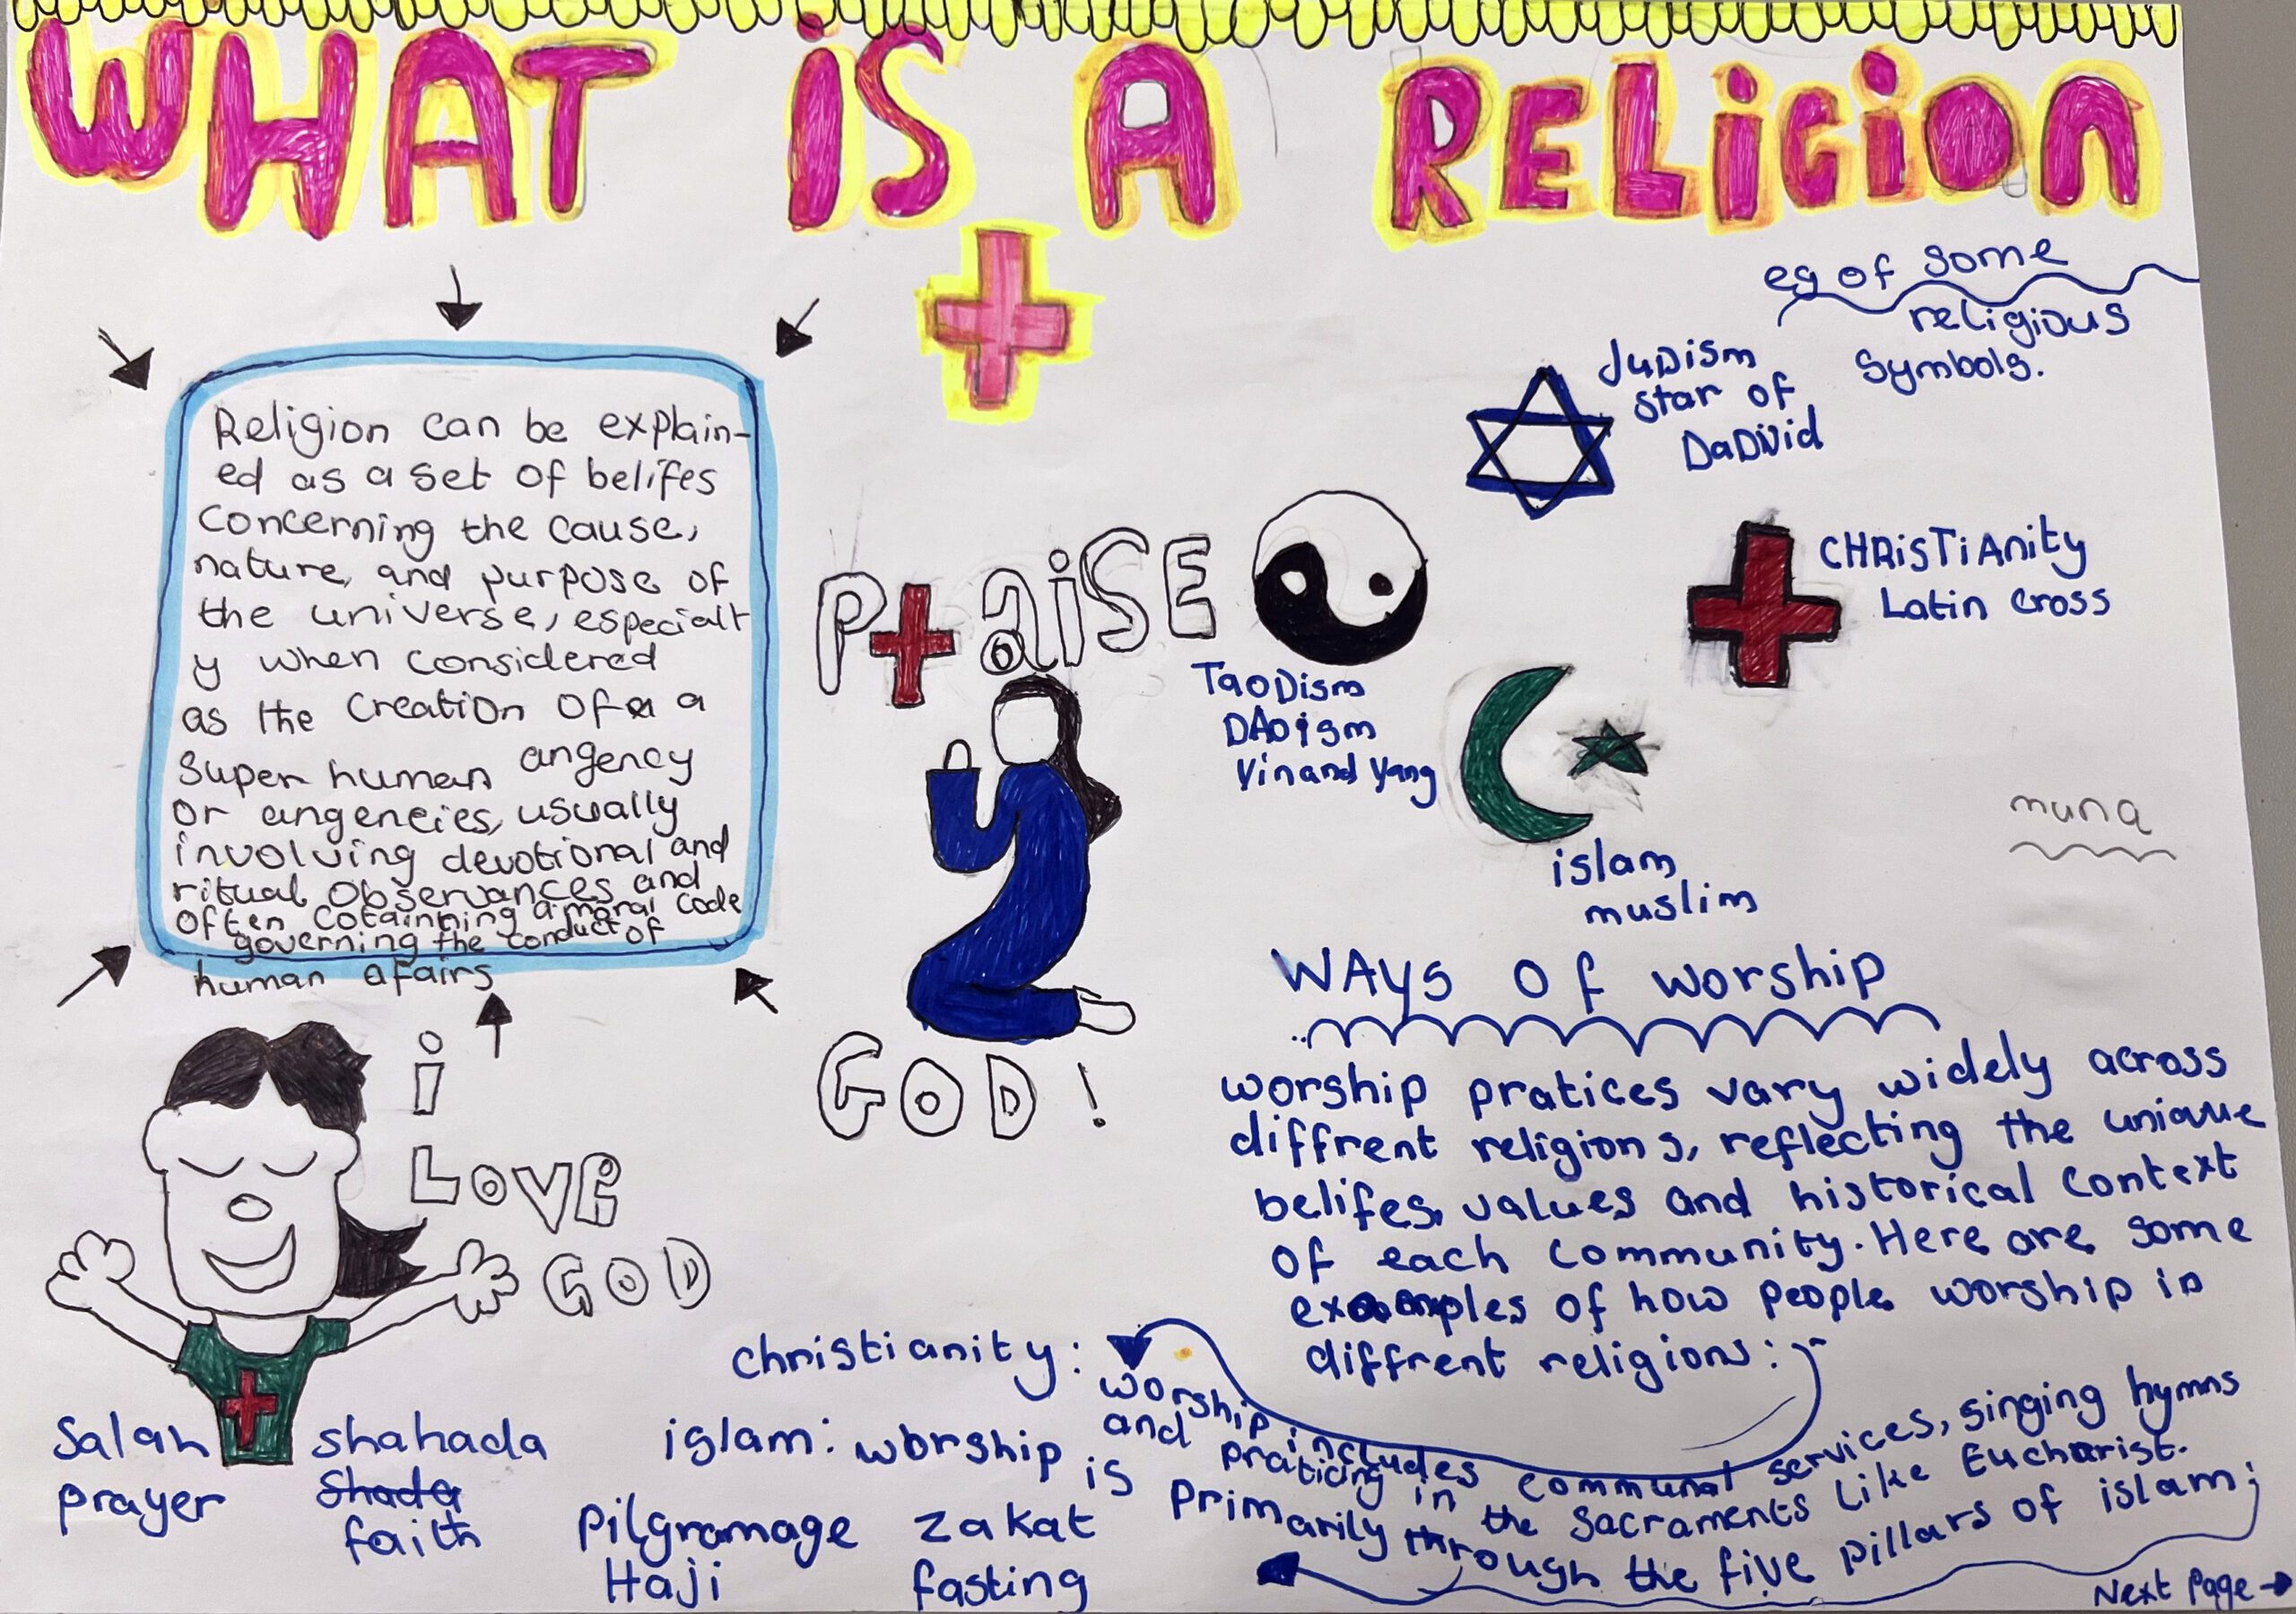 WHAT iS A RELiGiON
Religion can be explain-
ed as a set of belifes
concerning the cause,
nature, and purpose of
the universe, especialt
y when considered
as the creation of a a
super human angency
or angeneies, usually
involving devotional and
ritual observances and
often cotainning a moral code
governing the conduct of
human afairs
eg of some
religious
symbols.
JuDism
star of
DaDVid
CHRiSTiAnity
Latin cross
PRaiSE
GOD!
TaoDism
DAoism
Yin and Yang
islam
muslim
muna
i
LOVE
GOD
WAys of worship
worship pratices vary widely across
diffrent religions, reflecting the unique
belifes, values and historical context
of each community. Here are some
examples of how people worship in
diffrent religions:
christianity: worship includes communal services, singing hymns
and praticing in the sacraments like Eucharist.
islam: worship is primarily through the five pillars of islam;
Salah
prayer
shahada
shada
faith
pilgramage
Haji
zakat
fasting
Next page →